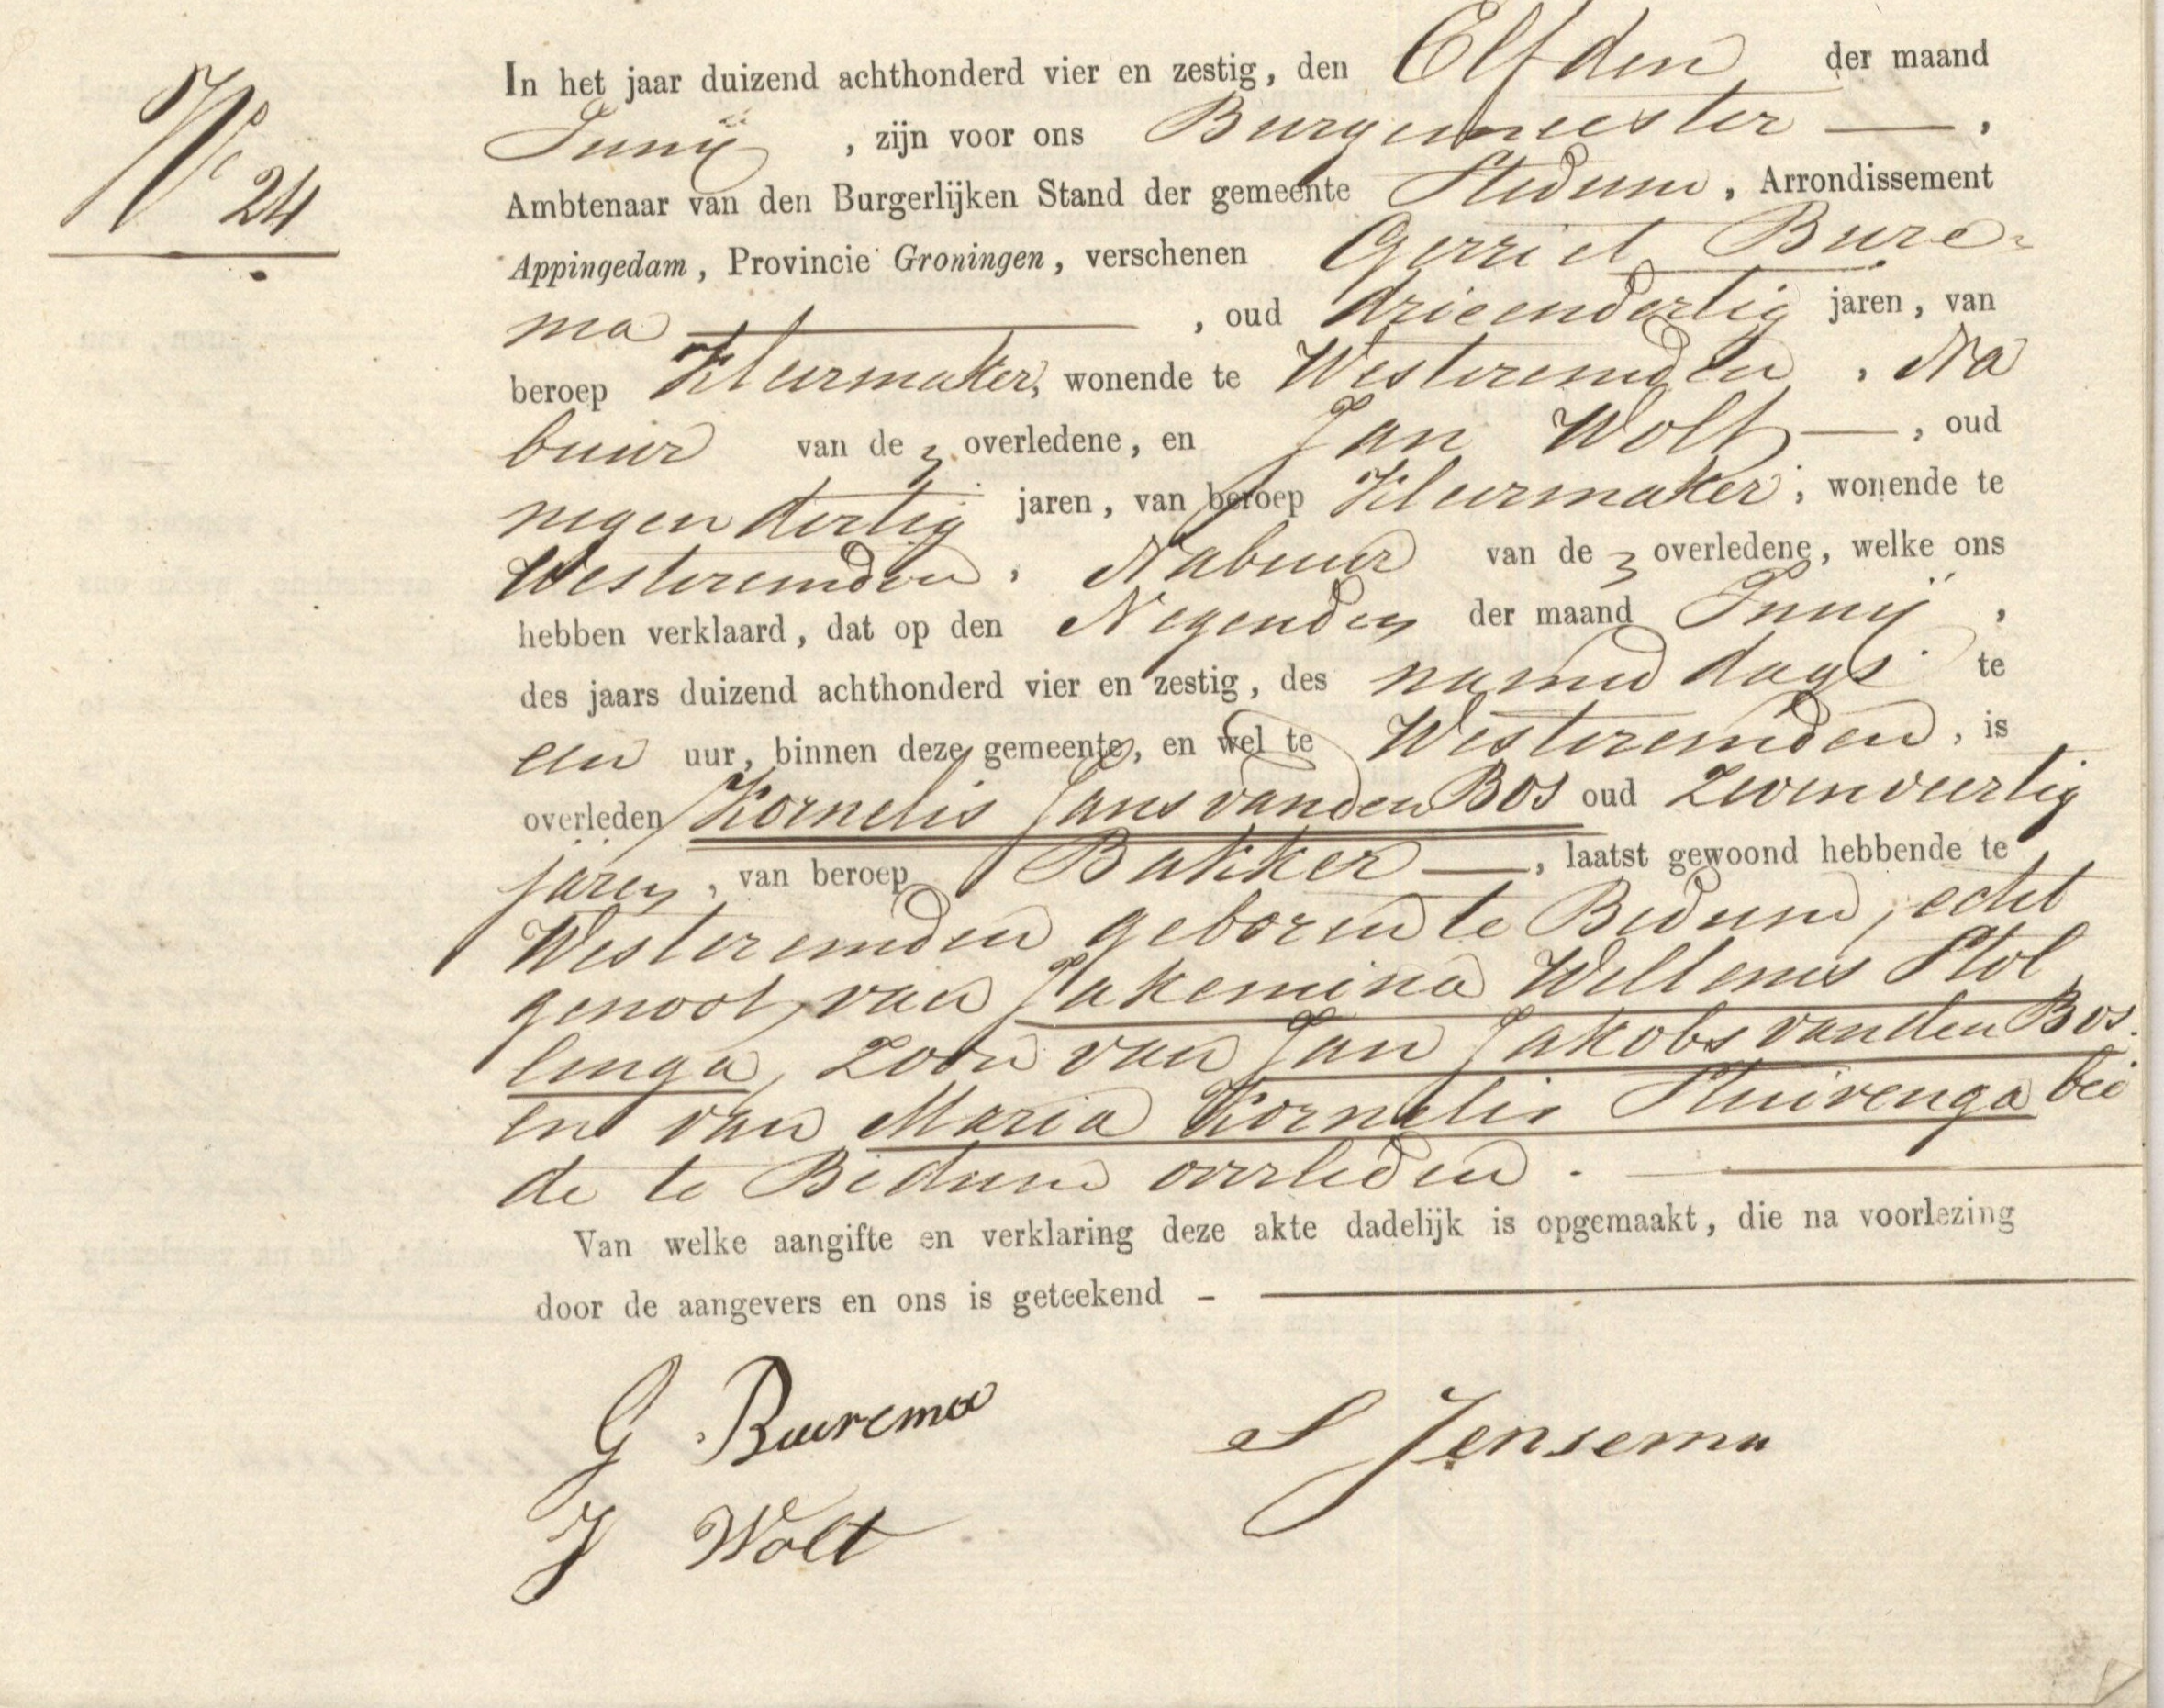 No 24
In het jaar duizend achthonderd vier en zestig, den Elfden der maand
Junij, zijn voor ons Burgemeester —,
Ambtenaar van den Burgerlijken Stand der gemeente Stedum, Arrondissement
Appingedam, Provincie Groningen, verschenen Gerriet Bure-
ma —, oud drieendertig jaren, van
beroep Kleermaker, wonende te Westeremden, Na
buur van de overledene, en Jan Wolt —, oud
negendertig jaren, van beroep Kleermaker, wonende te
Westeremden, Nabuur van de overledene, welke ons
hebben verklaard, dat op den Negenden der maand Junij,
des jaars duizend achthonderd vier en zestig, des namiddags te
een uur, binnen deze gemeente, en wel te Westeremden, is
overleden Kornelis Jans vanden Bos oud Zevenveertig
jaren, van beroep Bakker —, laatst gewoond hebbende te
Westeremden geboren te Bedum, echt
genoot van Jakemina Willems Stol
linga, Zoon van Jan Jakobs vanden Bos.
en van Maria Kornelis Stuivenga bei
de te Bedum overleden. —
Van welke aangifte en verklaring deze akte dadelijk is opgemaakt, die na voorlezing
door de aangevers en ons is geteekend – —
G Buurema
S Jensema
J Wolt